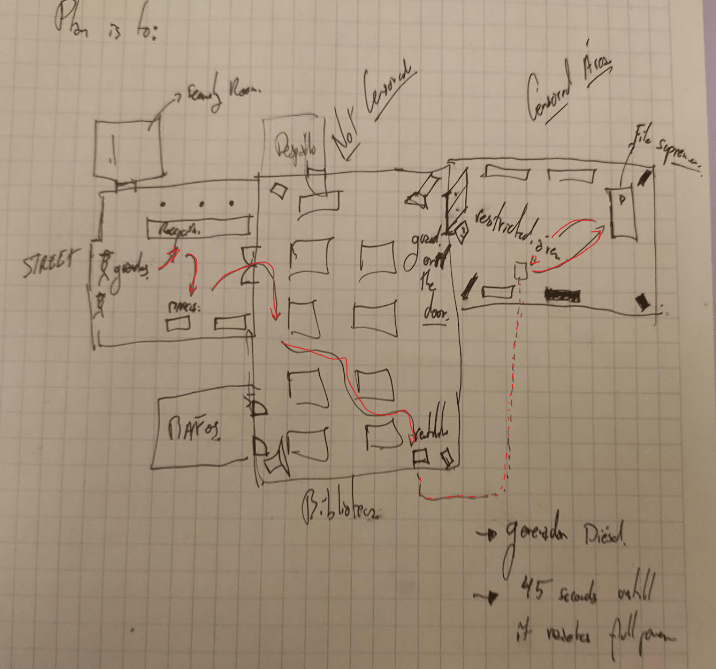 Plan is to:
Security Room.
Not Censored
Censored Area
Despatx
File supreme
Recepció.
restricted area
STREET
guards
guard on the door.
BAÑOS.
BAÑOS.
ventil
Biblioteca
→ generador Diésel.
→ 45 seconds untill
it reaches full power